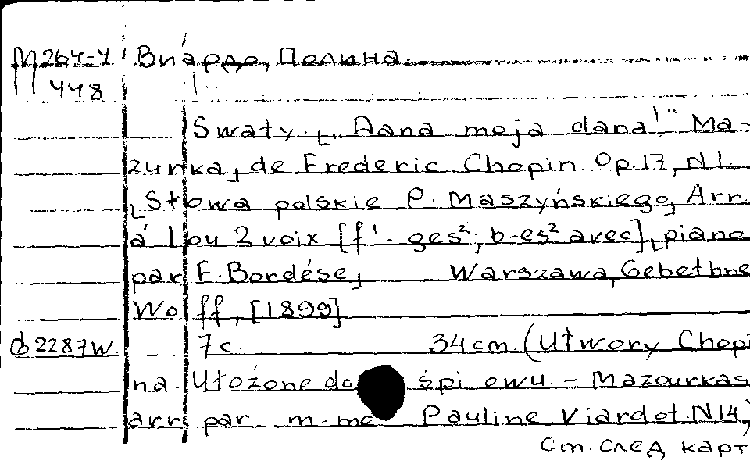 М264-4 Виардо, Полина.
448
Swaty. [„Dana moja dana!" Ma-
zurka] de Frederic Chopin Op.17, N1.
[Słowa polskie P. Maszyńskiego, Arr.
à 1 ou 2 voix [f¹-ges², b-es² avec] piano
par E. Bordése] Warszawa, Gebethne
Wolff, [1899]
ф2287w 7 с. 34 cm. (Utwory Chopi
na. Ułożone do śpiewu - Mazourkas
arr. par m-me Pauline Viardot. N14,
См. след карт